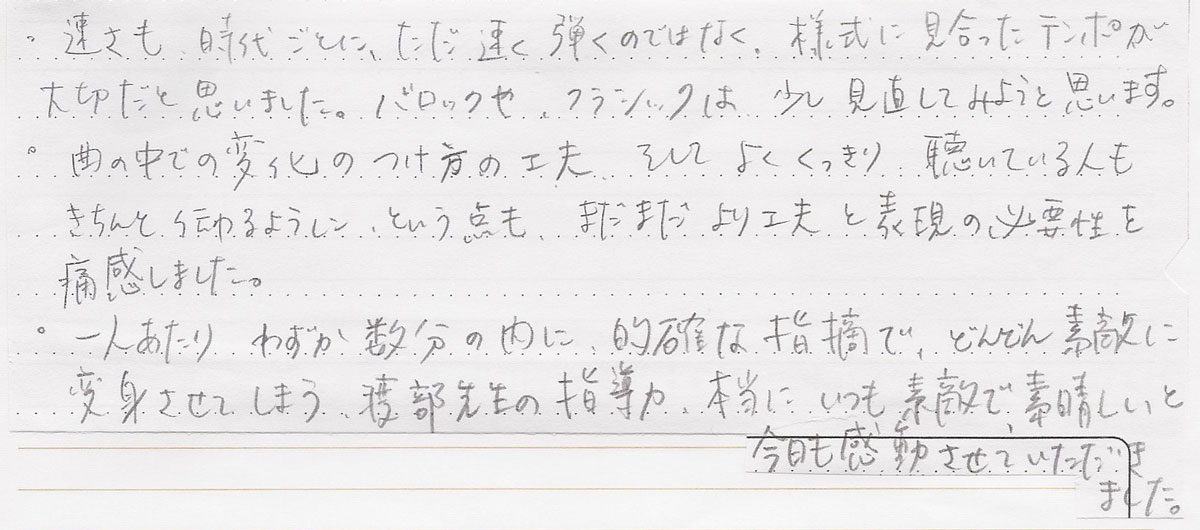 。速さも、時代ごとに、ただ速く弾くのではなく、様式に見合ったテンポが
大切だと思いました。バロックや、クラシックは、少し見直してみようと思います。
。曲の中での変化のつけ方の工夫、そしてよくくっきり、聴いている人も
きちんと伝わるように、という点も、まだまだより工夫と表現の必要性を
痛感しました。
。一人あたりわずか数分の内に、的確な指摘で、どんどん素敵に
変身させてしまう、渡部先生の指導力、本当にいつも素敵で、素晴しいと
今日も感動させていただき
ました。